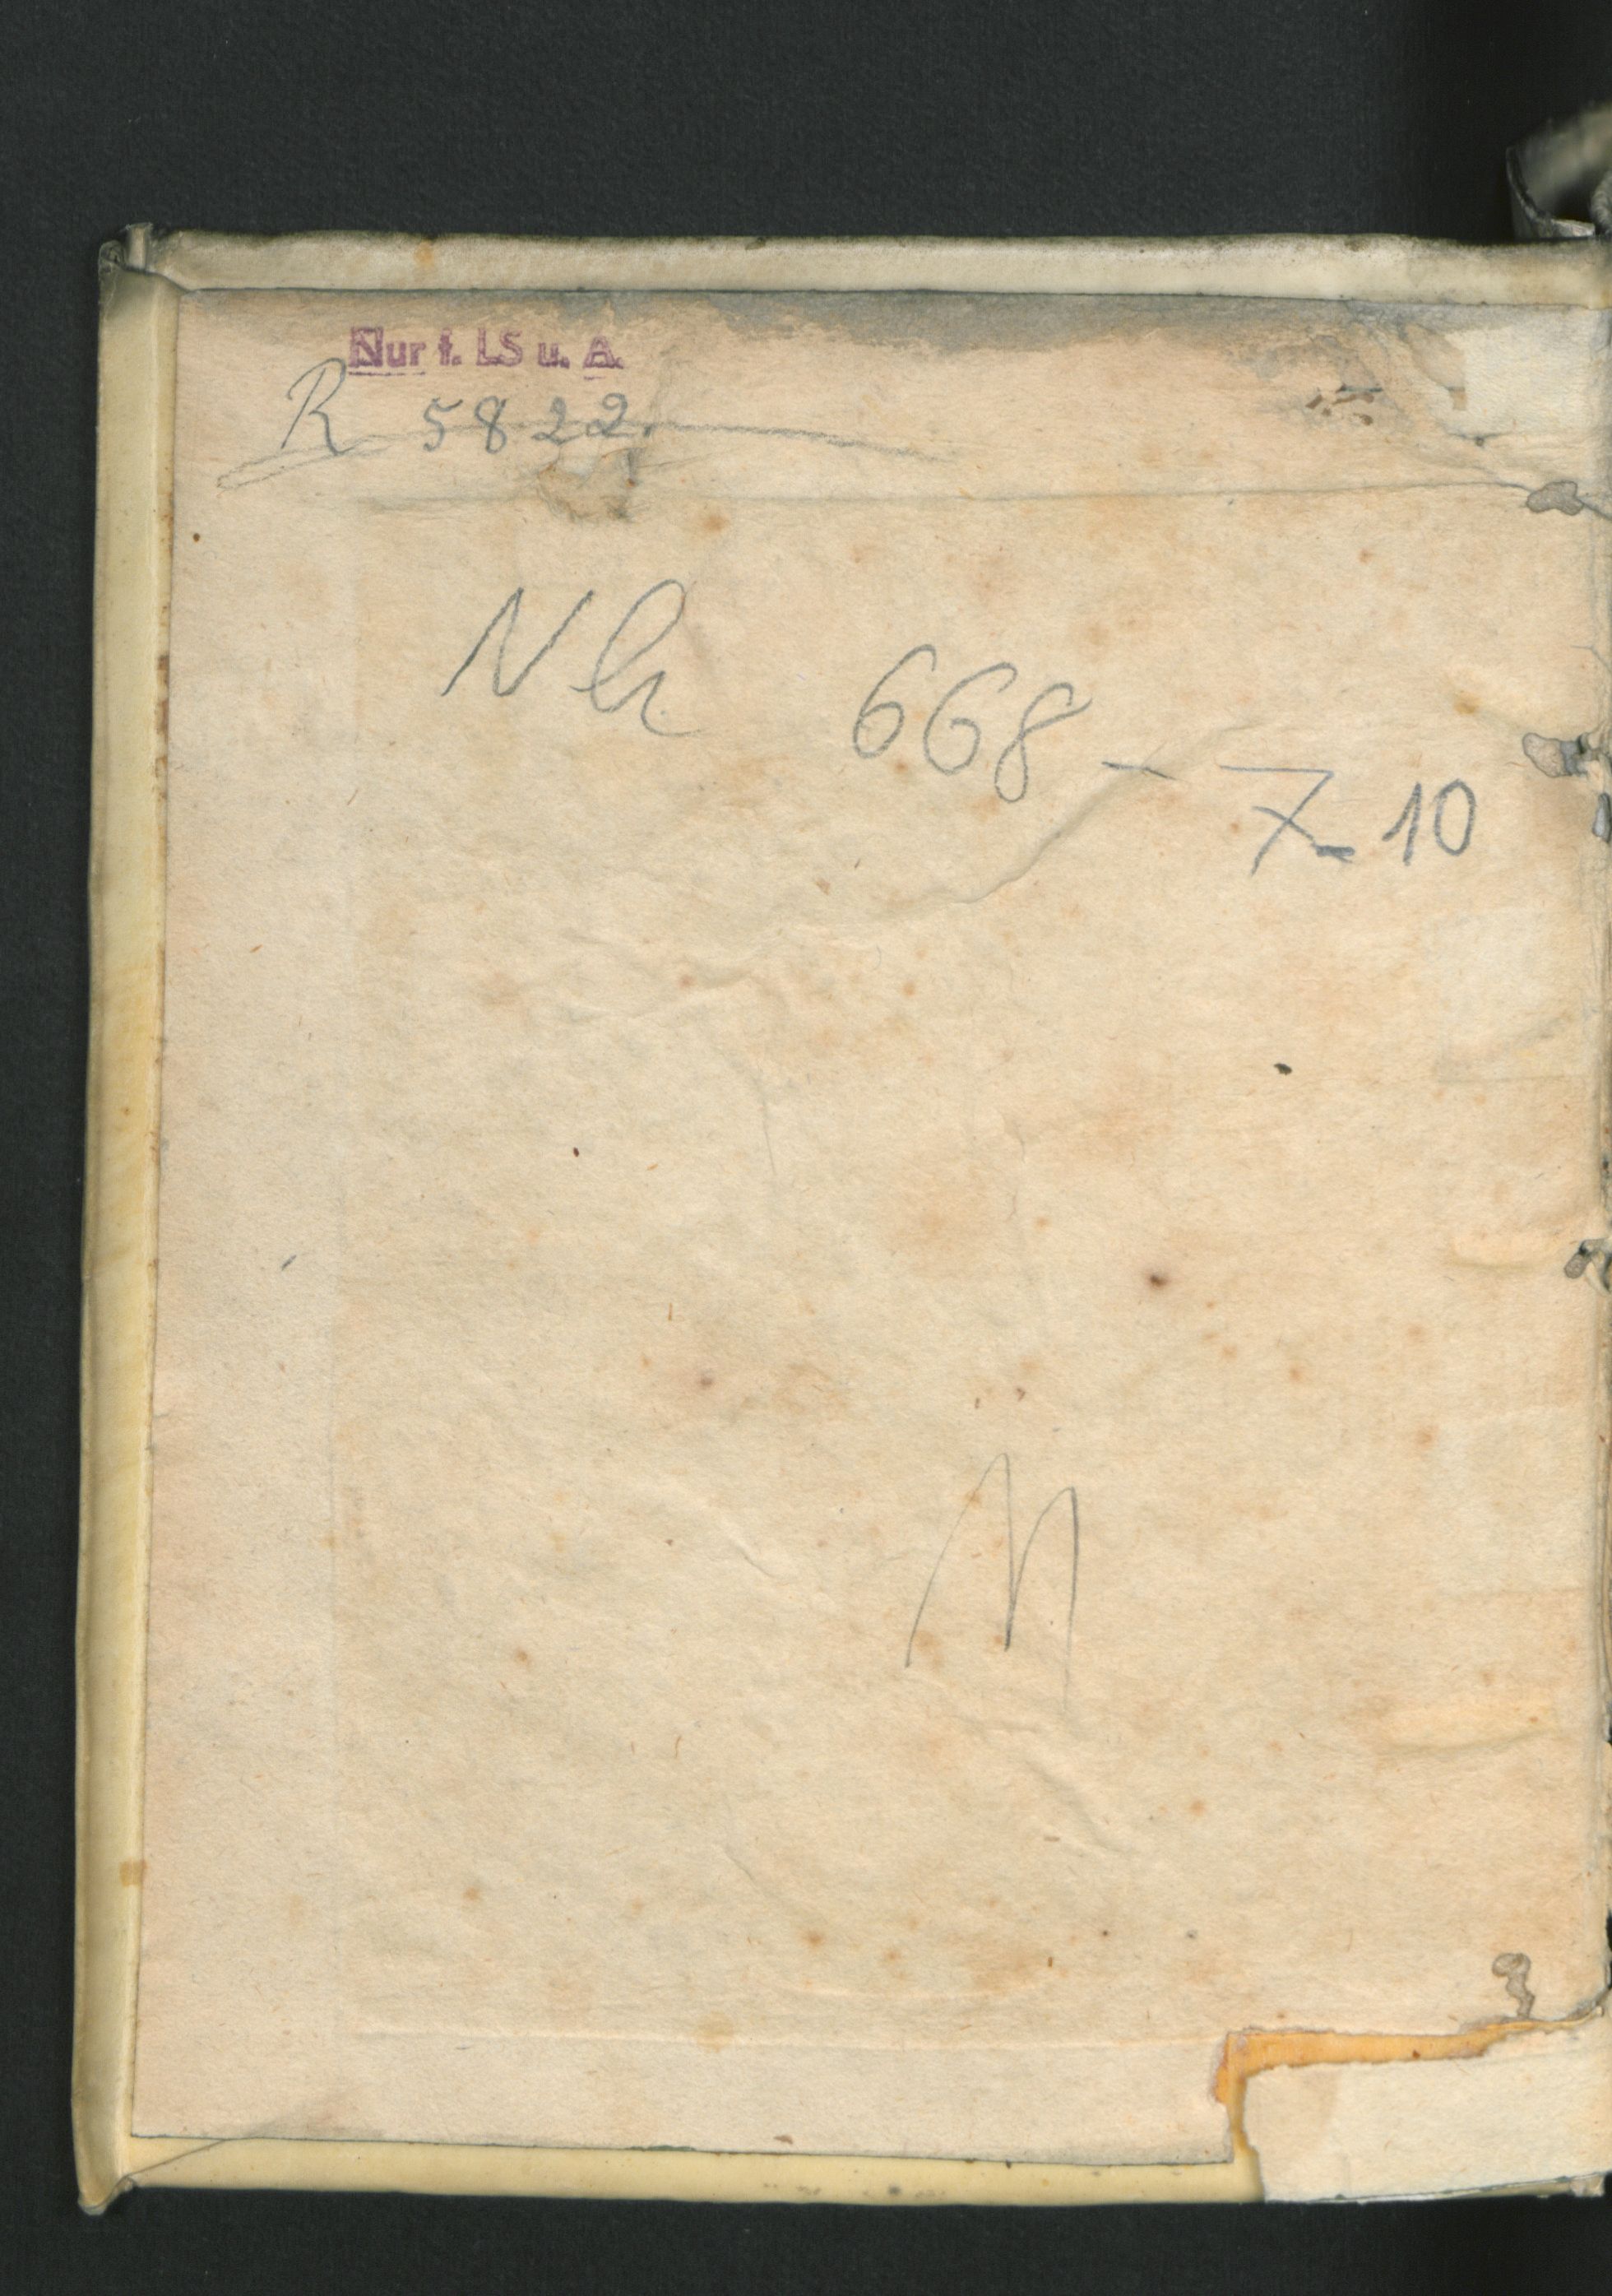 Nur f. LS u. A.
R 5822.
Nh 668 - 7-10